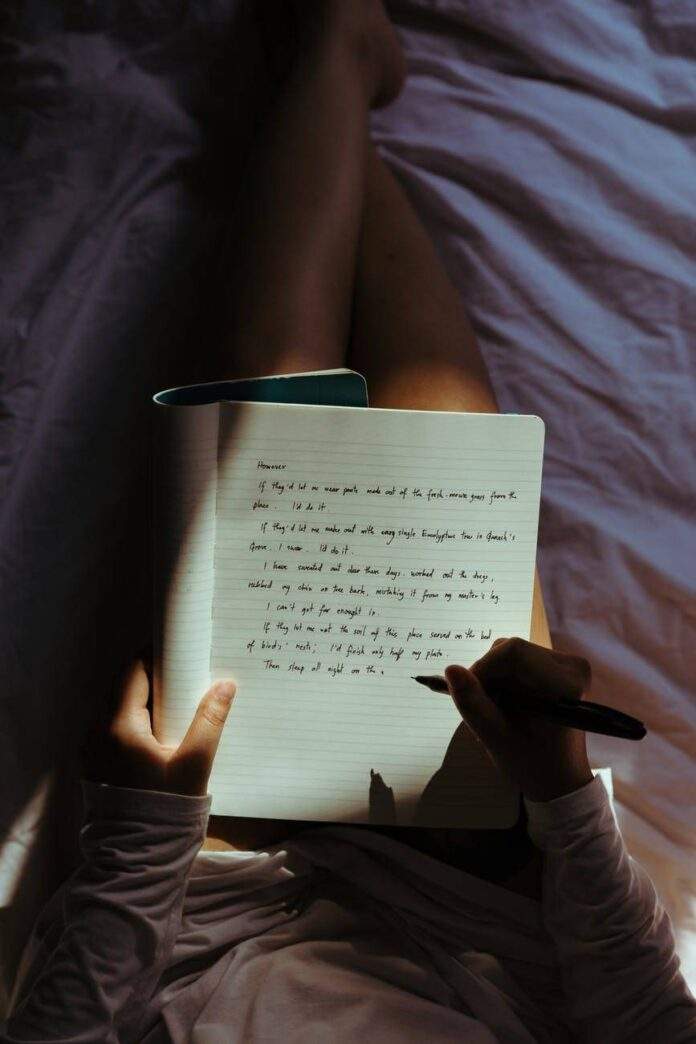 However
If they'd let me wear pants made out of the fresh-mown grass from the
place. I'd do it.
If they'd let me make out with every single Eucalyptus tree in 's
Grove. I swear. I'd do it.
I have sweated out dear these days. worked out the dregs,
rubbed my chin on tree bark, mistaking it from my master's leg
I can't get far enough in.
If they let me eat the soil of this place served on the bed
of birds' nests; I'd finish only half my plate.
Then sleep all night on the